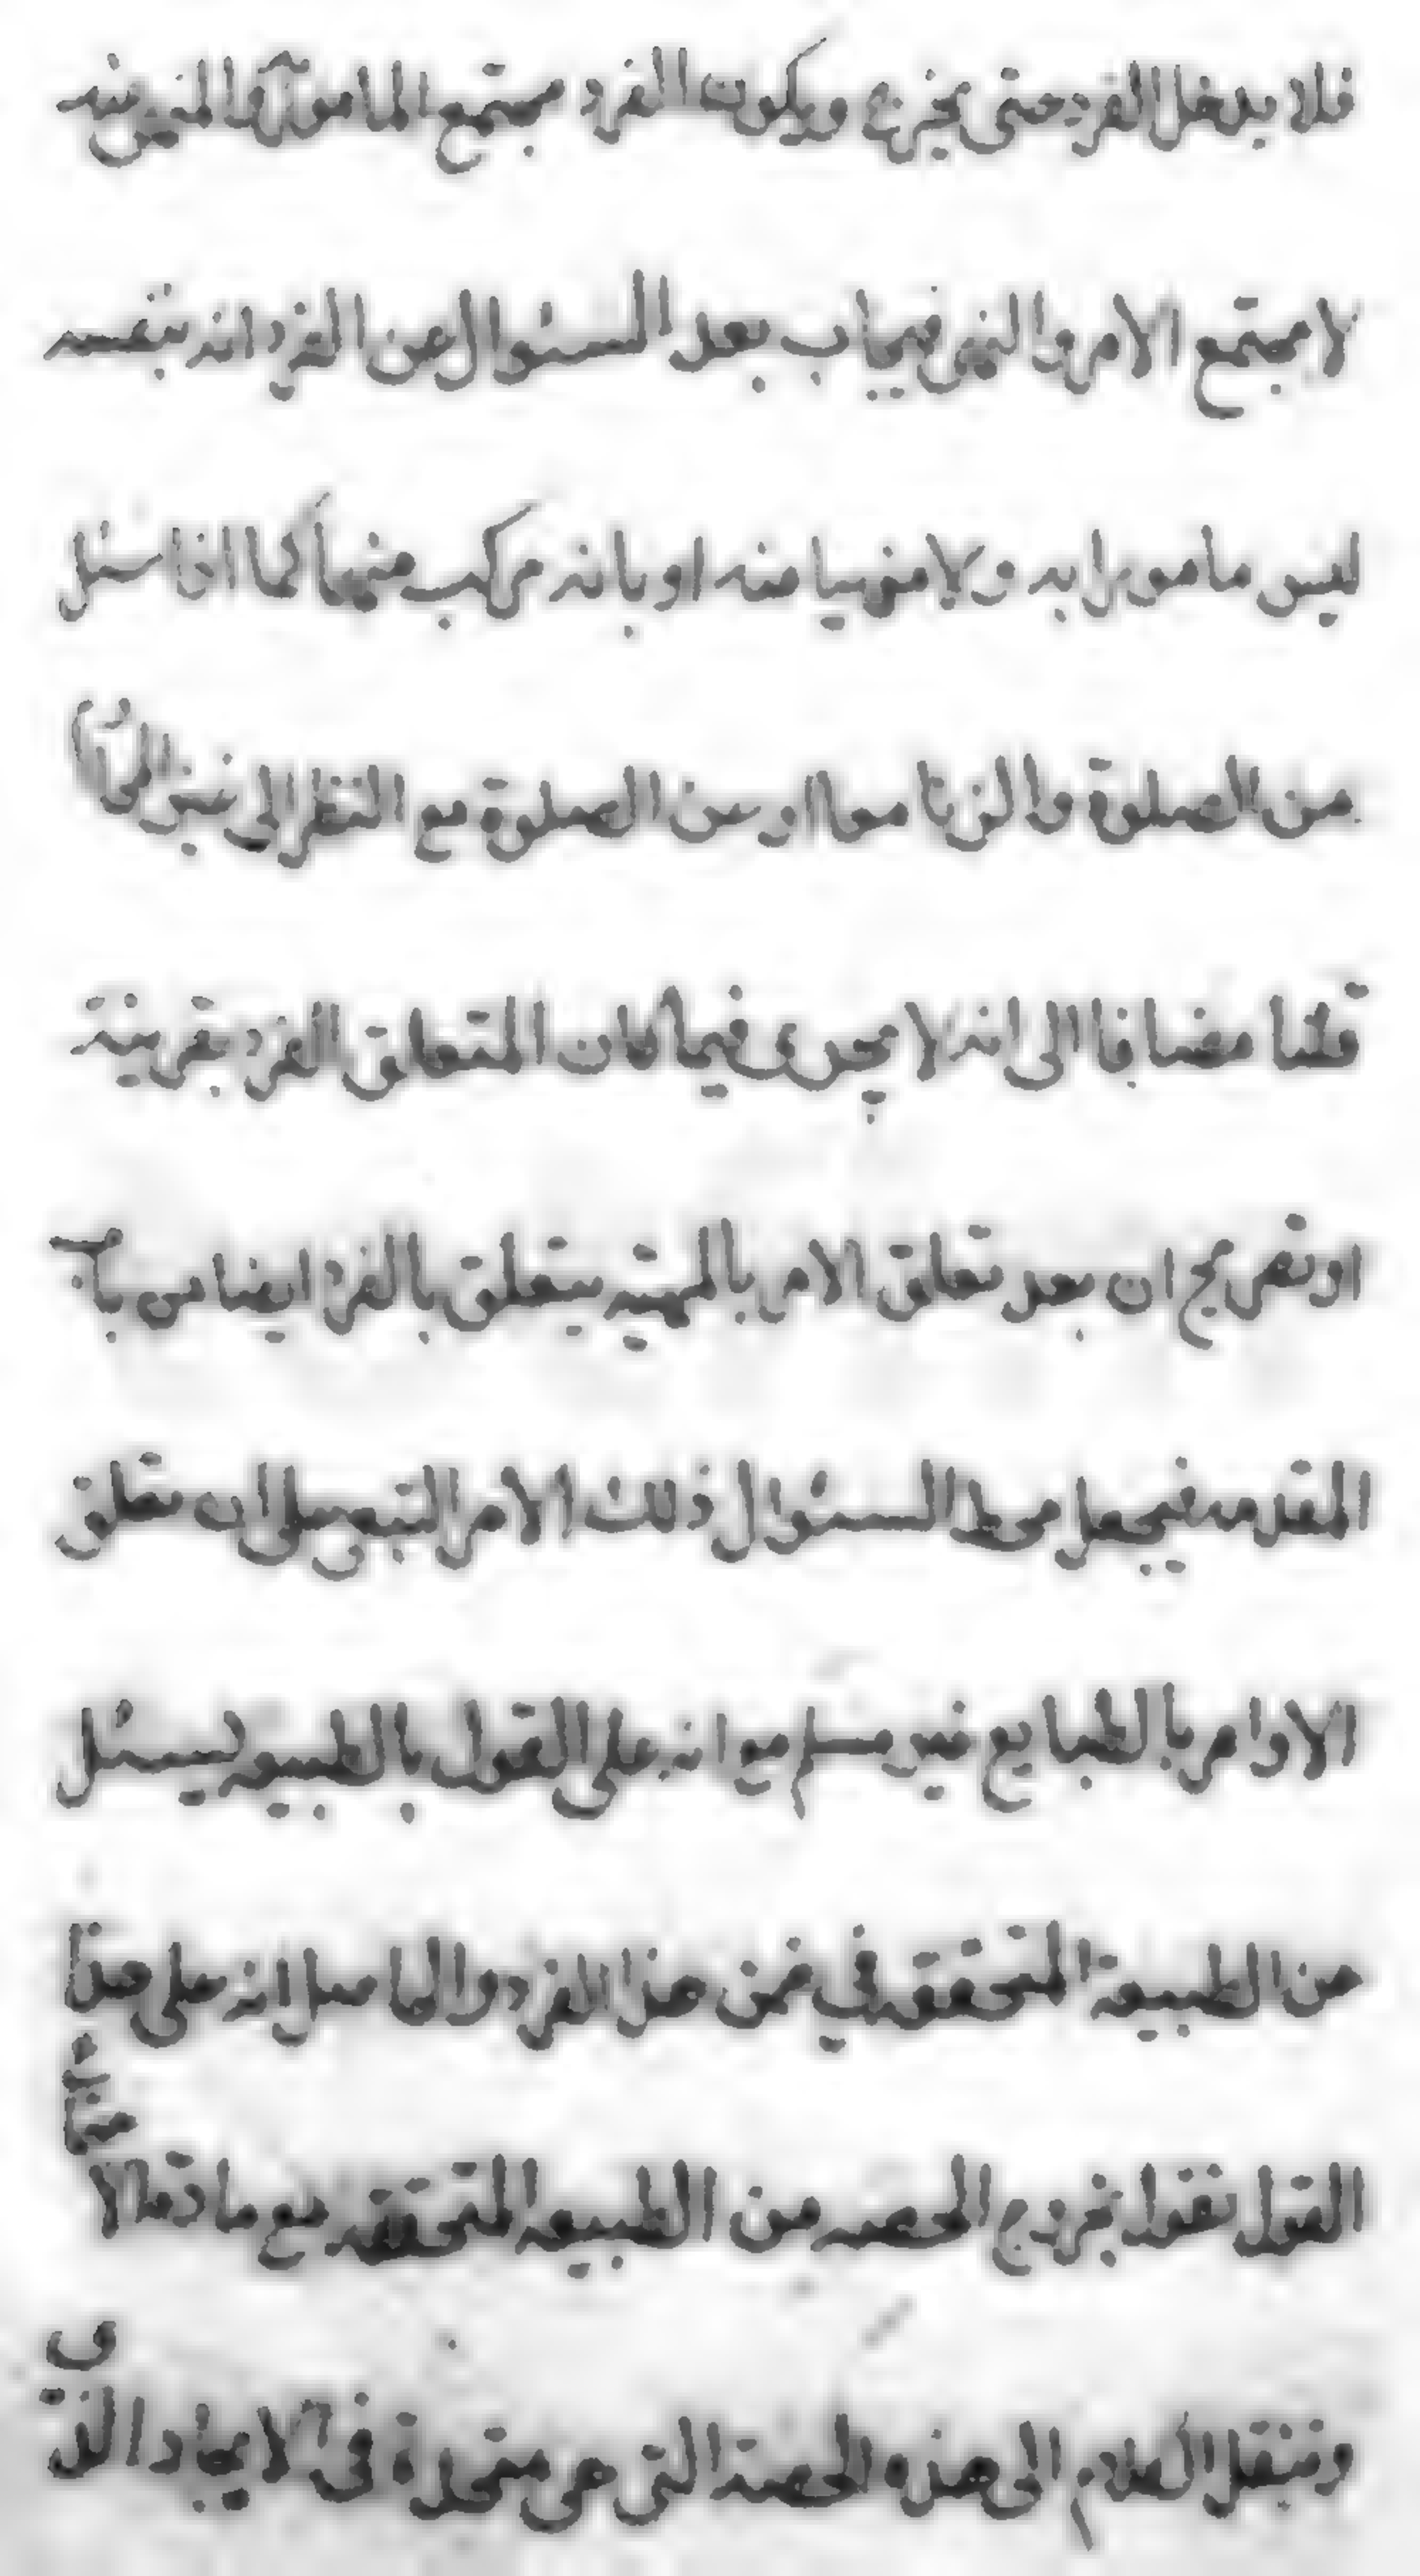 فلا يدخل الفرد حتى يخرج ويكون الفرد مجتمع المامور به والمنهى عنه
لا مجتمع الامر والنهى فيجاب بعد السئوال عن الفرد انه بنفسه
ليس مامورا به ولا منهيا عنه او بانه مركب منهما كما اذا سئل
عن الصلوة والزنا معا او عن الصلوة مع النظر الى
قلنا مضافا الى انه لا يجرى فيما كان المتعلق الفرد بقرينة
او نفس بج ان بعد تعلق الامر بالمهية يتعلق بالفرد ايضا من باب
المقدمه فيجعل محط السئوال ذلك الامر التبعى على ان تعلق
الاوامر بالطبايع غير مسلم مع انه على القول بالطبيعه ليسئل
عن الطبيعة المتحققه فى ضمن هذا الفرد والحاصل انه على هذا
القول نقول بخروج الحصه من الطبيعه المتحققه مع مادة الا
وننقل الكلام الى هذه الحصة التى هى متحدة فى الايجاد